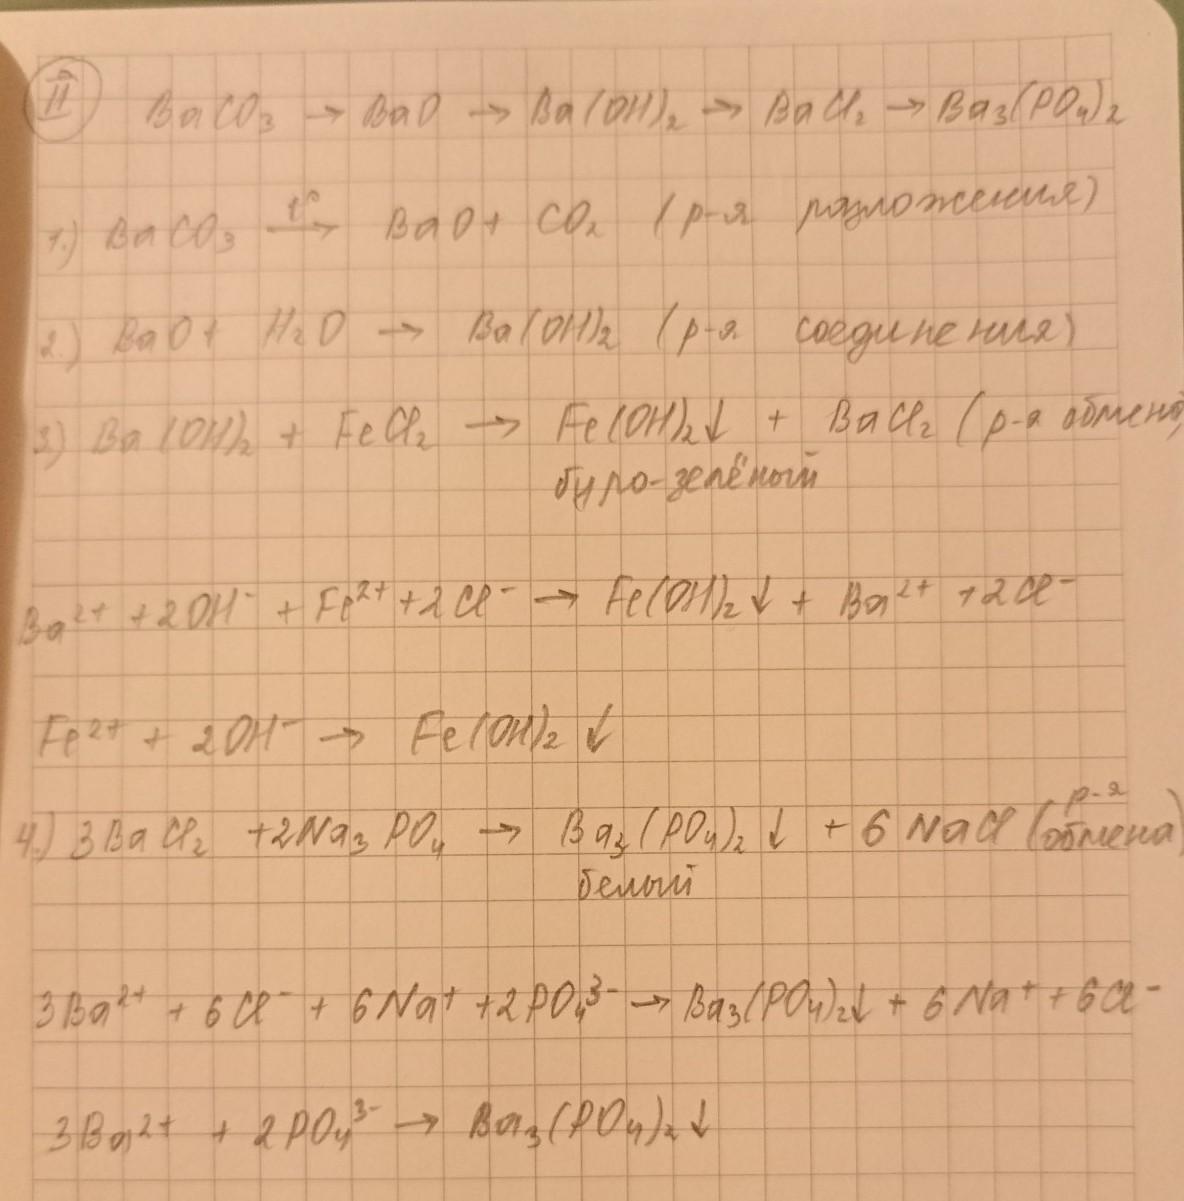 II
BaCO₃ → BaO → Ba(OH)₂ → BaCl₂ → Ba₃(PO₄)₂
1.) BaCO₃ —t°→ BaO + CO₂ (р-я разложения)
2.) BaO + H₂O → Ba(OH)₂ (р-я соединения)
3) Ba(OH)₂ + FeCl₂ → Fe(OH)₂↓ + BaCl₂ (р-я обмена)
буро-зелёный
Ba²⁺ + 2OH⁻ + Fe²⁺ + 2Cl⁻ → Fe(OH)₂↓ + Ba²⁺ + 2Cl⁻
Fe²⁺ + 2OH⁻ → Fe(OH)₂↓
4.) 3BaCl₂ + 2Na₃PO₄ → Ba₃(PO₄)₂↓ + 6NaCl (р-я обмена)
белый
3Ba²⁺ + 6Cl⁻ + 6Na⁺ + 2PO₄³⁻ → Ba₃(PO₄)₂↓ + 6Na⁺ + 6Cl⁻
3Ba²⁺ + 2PO₄³⁻ → Ba₃(PO₄)₂↓